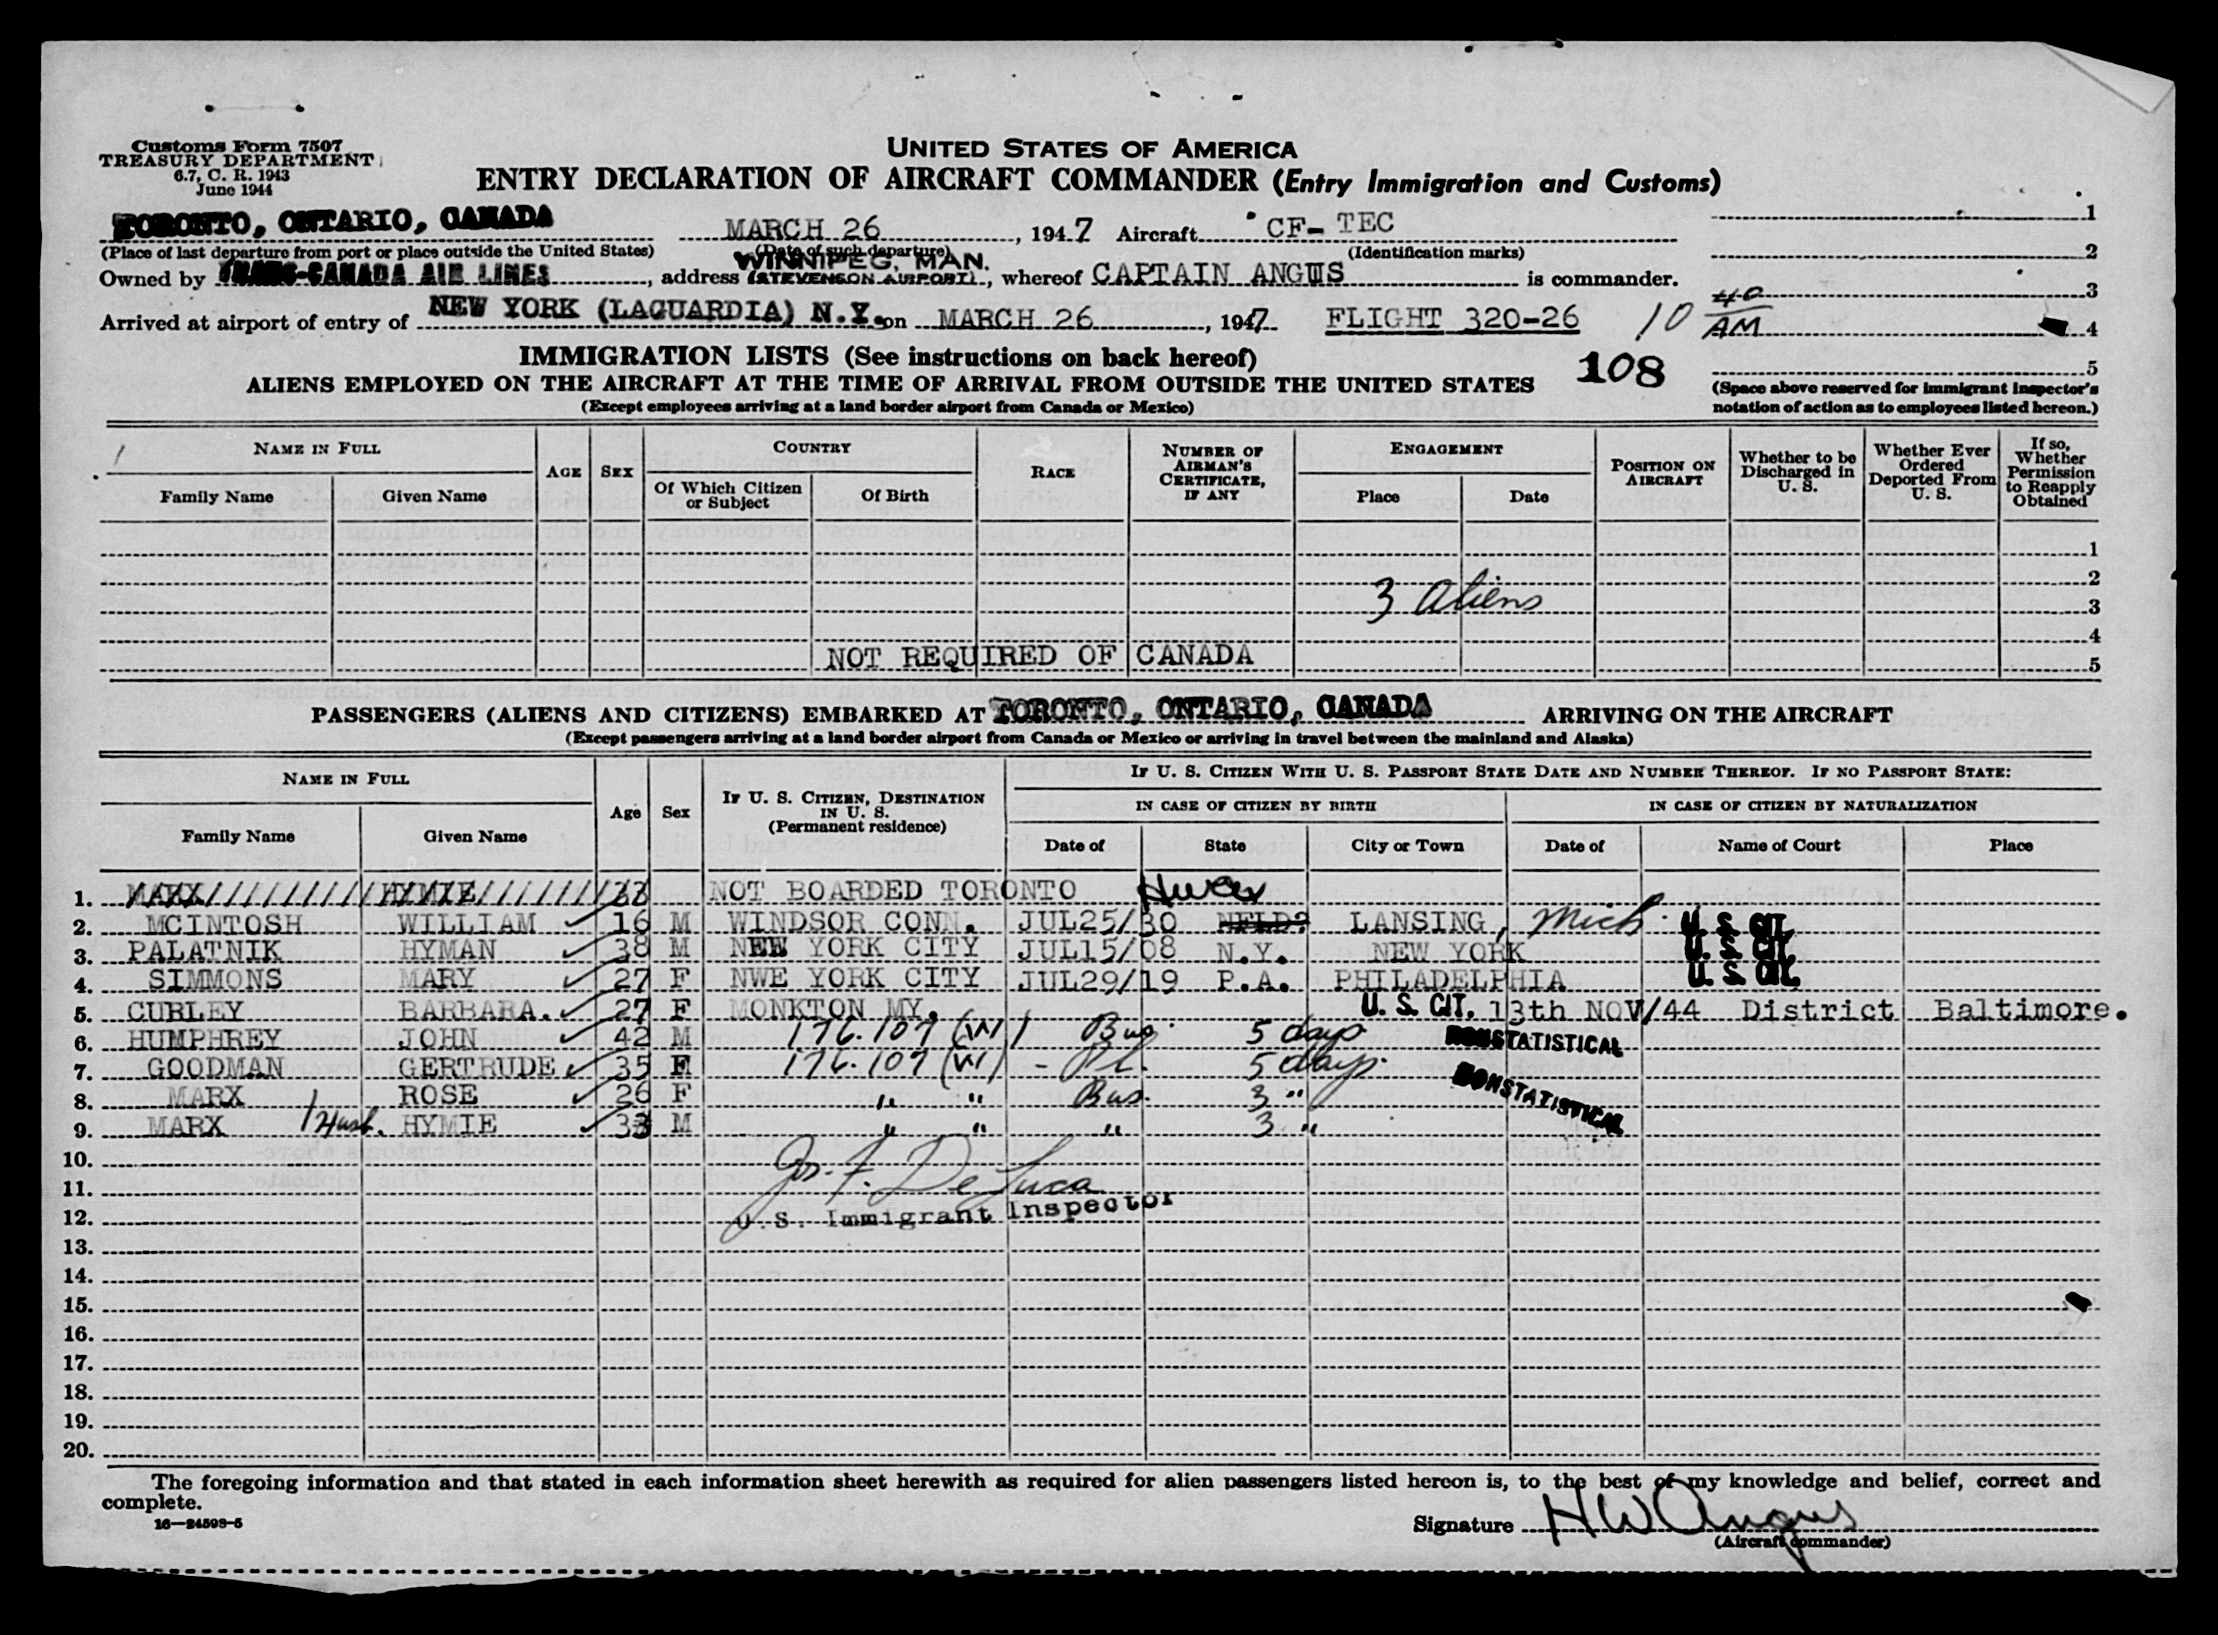 Customs Form 7507
TREASURY DEPARTMENT
6.7, C. R. 1943
June 1944
UNITED STATES OF AMERICA
ENTRY DECLARATION OF AIRCRAFT COMMANDER (Entry Immigration and Customs)
TORONTO, ONTARIO, CANADA MARCH 26, 1947 Aircraft CF-TEC 1
(Place of last departure from port or place outside the United States) (Date of such departure) (Identification marks) 2
Owned by TRANS-CANADA AIR LINES, address WINNIPEG, MAN. (STEVENSON AIRPORT), whereof CAPTAIN ANGUS is commander. 3
Arrived at airport of entry of NEW YORK (LAGUARDIA) N.Y. on MARCH 26, 1947 FLIGHT 320-26 10 40 AM 4
IMMIGRATION LISTS (See instructions on back hereof) 108 5
ALIENS EMPLOYED ON THE AIRCRAFT AT THE TIME OF ARRIVAL FROM OUTSIDE THE UNITED STATES
(Space above reserved for immigrant inspector's notation of action as to employees listed hereon.)
(Except employees arriving at a land border airport from Canada or Mexico)
NAME IN FULL AGE SEX COUNTRY RACE NUMBER OF AIRMAN'S CERTIFICATE, IF ANY ENGAGEMENT POSITION ON AIRCRAFT Whether to be Discharged in U. S. Whether Ever Ordered Deported From U. S. If so, Whether Permission to Reapply Obtained
Family Name Given Name Of Which Citizen or Subject Of Birth Place Date
1
2
3 Aliens 3
4
NOT REQUIRED OF CANADA 5
PASSENGERS (ALIENS AND CITIZENS) EMBARKED AT TORONTO, ONTARIO, CANADA ARRIVING ON THE AIRCRAFT
(Except passengers arriving at a land border airport from Canada or Mexico or arriving in travel between the mainland and Alaska)
NAME IN FULL Age Sex IF U. S. CITIZEN, DESTINATION IN U. S. (Permanent residence) IF U. S. CITIZEN WITH U. S. PASSPORT STATE DATE AND NUMBER THEREOF. IF NO PASSPORT STATE:
IN CASE OF CITIZEN BY BIRTH IN CASE OF CITIZEN BY NATURALIZATION
Family Name Given Name Date of State City or Town Date of Name of Court Place
1. MARX///////// HYMIE//////// 33 NOT BOARDED TORONTO
2. MCINTOSH WILLIAM 16 M WINDSOR CONN. JUL25/30 NFLD? LANSING, Mich. U. S. CIT.
3. PALATNIK HYMAN 38 M NEW YORK CITY JUL15/08 N.Y. NEW YORK U. S. CIT.
4. SIMMONS MARY 27 F NWE YORK CITY JUL29/19 P.A. PHILADELPHIA U. S. CIT.
5. CURLEY BARBARA. 27 F MONKTON MY. U. S. CIT. 13th NOV/44 District Baltimore.
6. HUMPHREY JOHN 42 M 176.107 (W) Bus. 5 days NONSTATISTICAL
7. GOODMAN GERTRUDE 35 F 176.107 (W) - Pl. 5 days.
8. MARX ROSE 26 F " " Bus. 3 " NONSTATISTICAL
9. MARX Husb. HYMIE 33 M " " " 3 "
10.
11. Jos. F. De Luca
12. U. S. Immigrant Inspector
13.
14.
15.
16.
17.
18.
19.
20.
The foregoing information and that stated in each information sheet herewith as required for alien passengers listed hereon is, to the best of my knowledge and belief, correct and
complete.
16—24593-5
Signature HW Angus
(Aircraft commander)